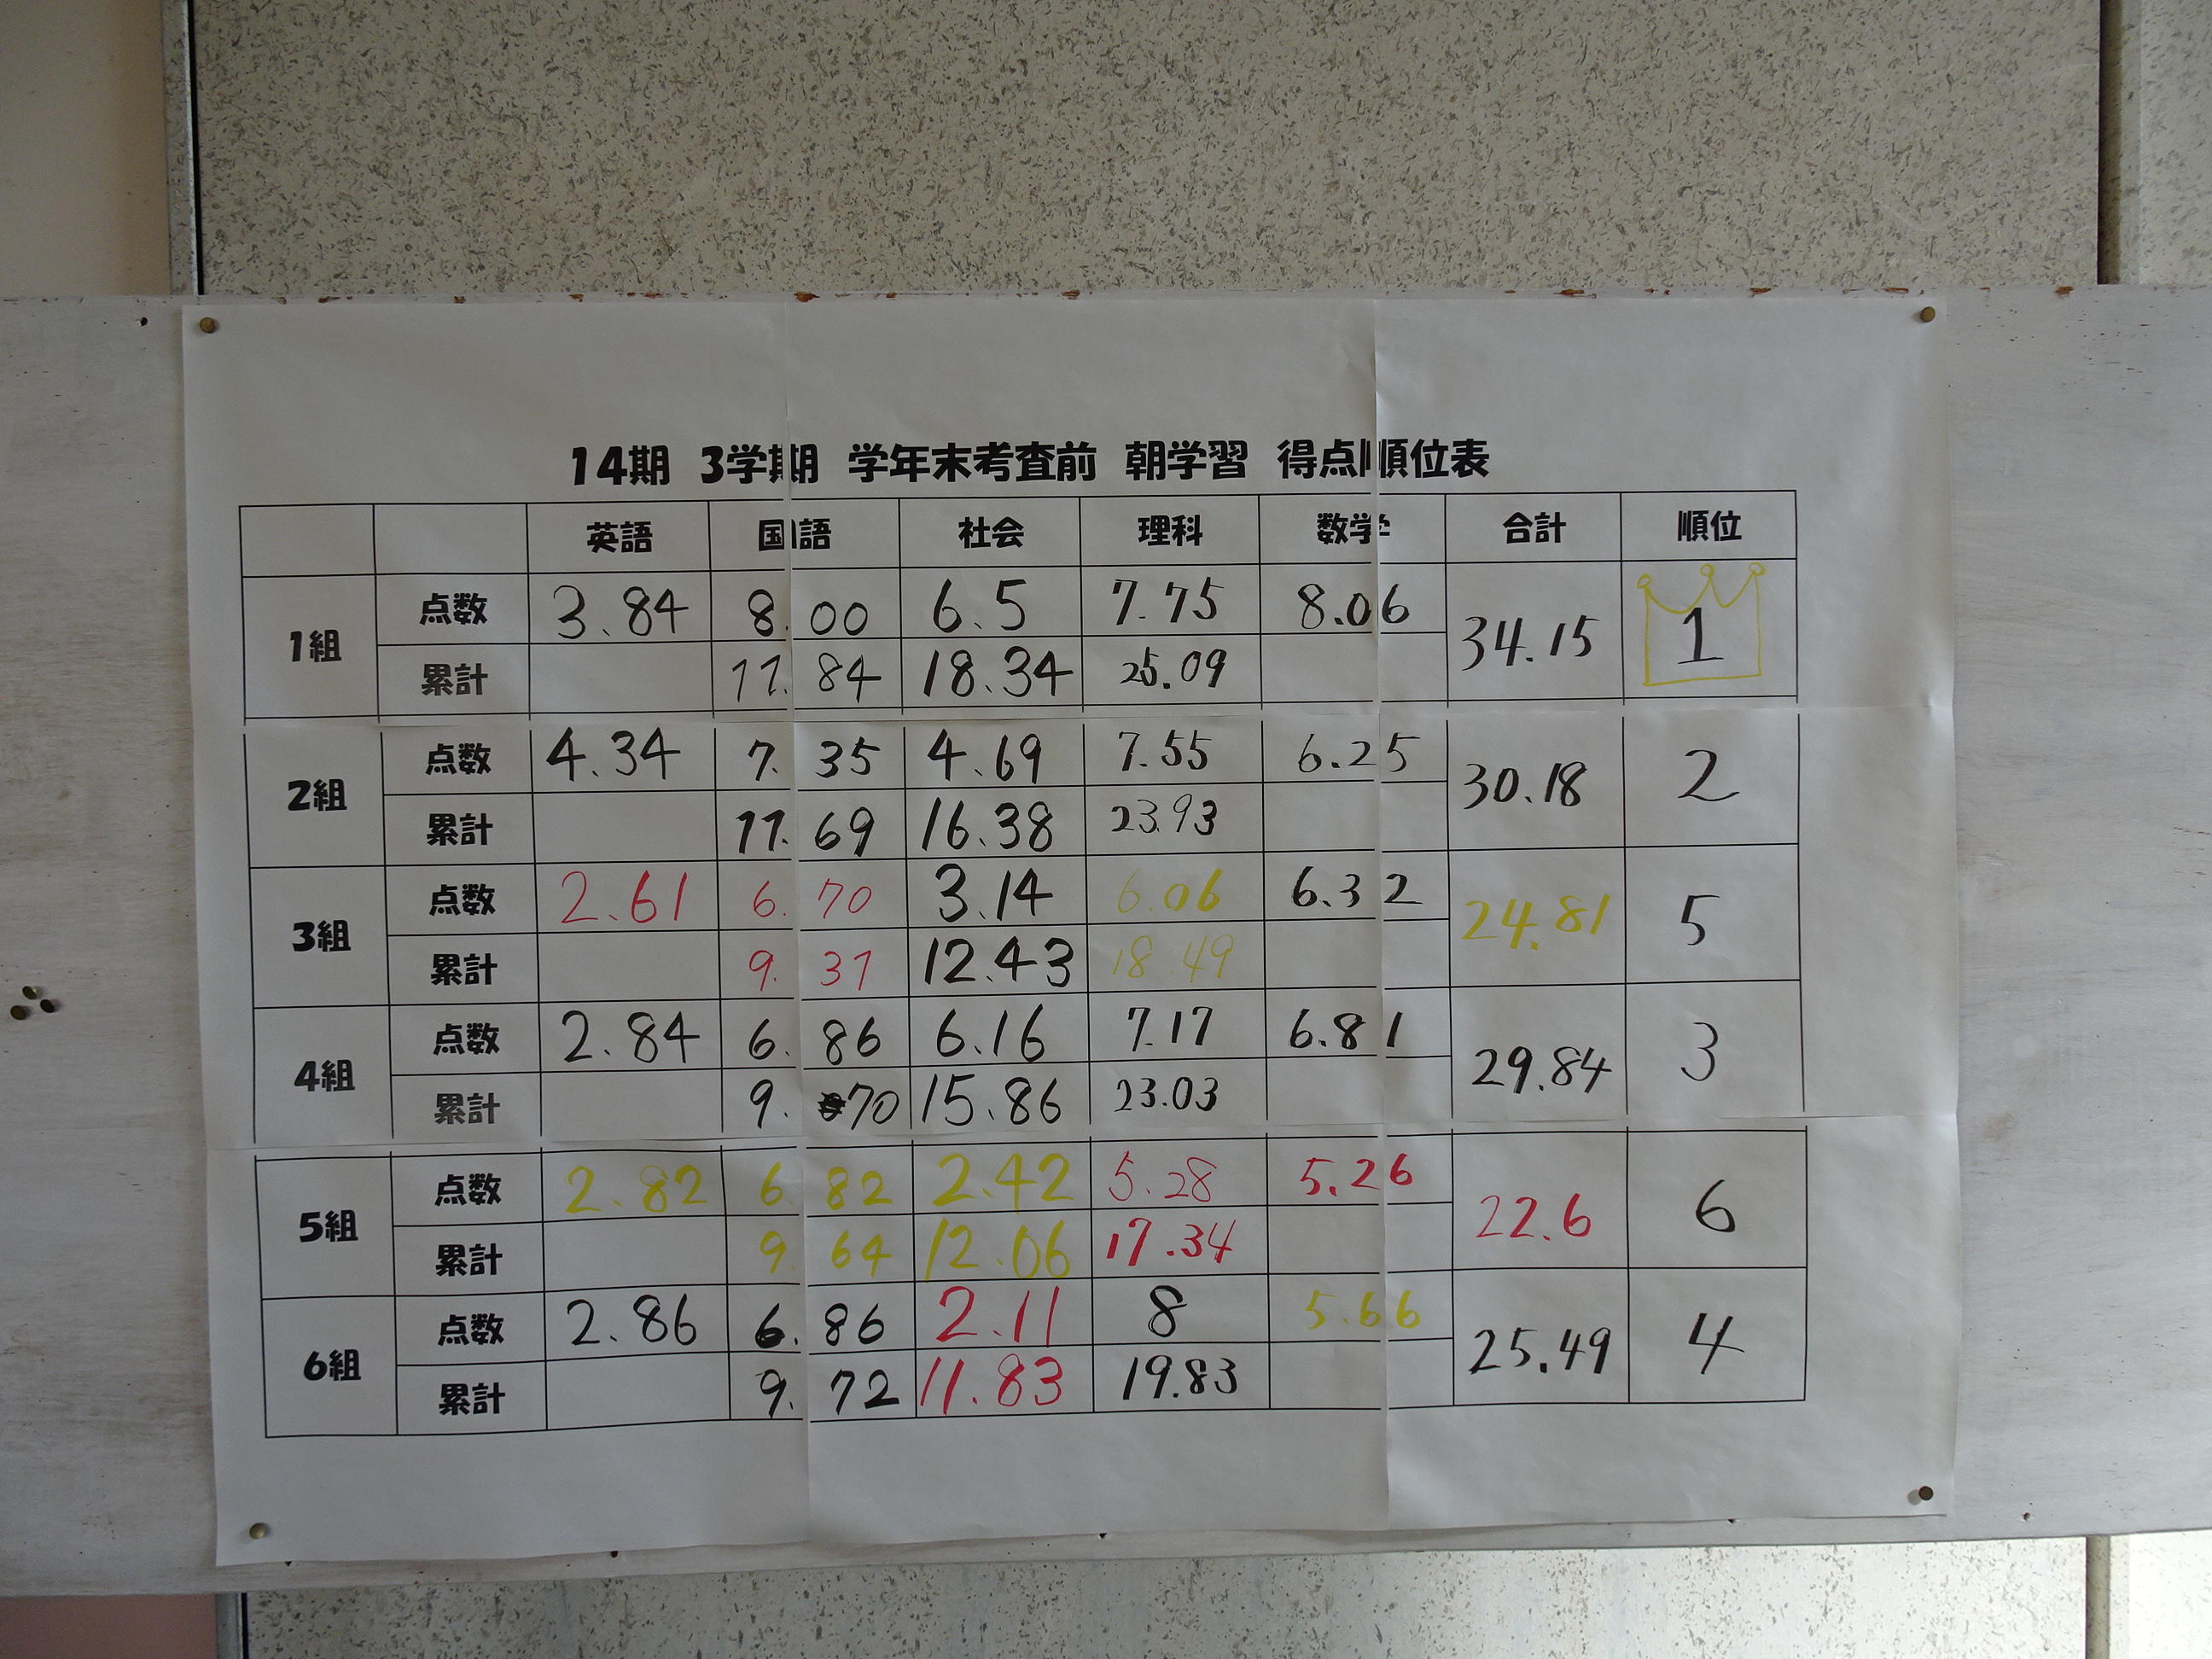 14期 3学期 学年末考査前 朝学習 得点順位表
英語 国語 社会 理科 数学 合計 順位
1組 点数 3.84 8.00 6.5 7.75 8.06 34.15 1
累計 11.84 18.34 25.09
2組 点数 4.34 7.35 4.69 7.55 6.25 30.18 2
累計 11.69 16.38 23.93
3組 点数 2.61 6.70 3.14 6.06 6.32 24.81 5
累計 9.31 12.43 18.49
4組 点数 2.84 6.86 6.16 7.17 6.81 29.84 3
累計 9.70 15.86 23.03
5組 点数 2.82 6.82 2.42 5.28 5.26 22.6 6
累計 9.64 12.06 17.34
6組 点数 2.86 6.86 2.11 8 5.66 25.49 4
累計 9.72 11.83 19.83